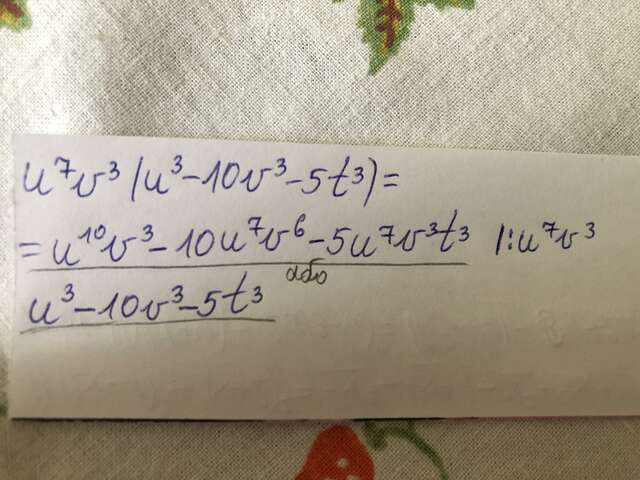 u⁷v³(u³-10v³-5t³)=
=u¹⁰v³-10u⁷v⁶-5u⁷v³t³ |:u⁷v³
або
u³-10v³-5t³